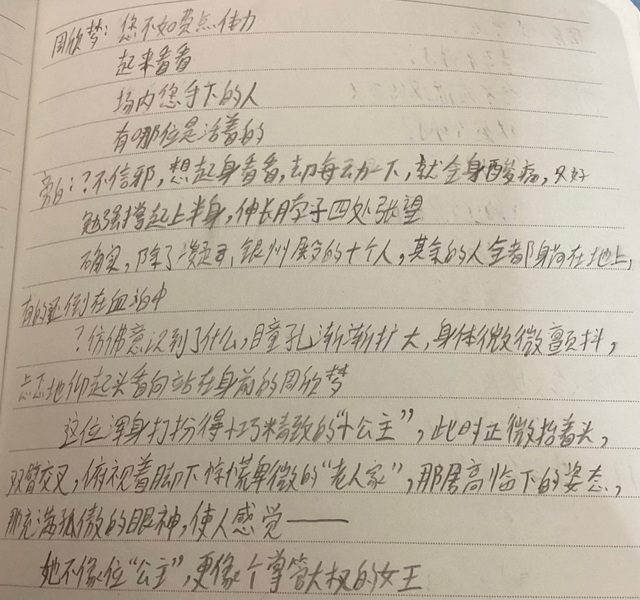 周欣梦：您不如费点体力
起来看看
场内您手下的人
有哪位是活着的
旁白：？不信邪，想起身看看，却每动一下，就全身酸痛，只好
勉强撑起上半身，伸长脖子四处张望
确实，除了 银州 的十个人，其余的人全都躺在地上，
有的还倒在血泊中
？仿佛意识到了什么，瞳孔渐渐扩大，身体微微颤抖，
忐忑地仰起头看向站在身前的周欣梦
这位浑身打扮得十巧精致的“小公主”，此时正微抬着头，
双臂交叉，俯视着脚下惊慌卑微的“老人家”，那居高临下的姿态，
那充满孤傲的眼神，使人感觉——
她不像位“公主”，更像个掌管大权的女王